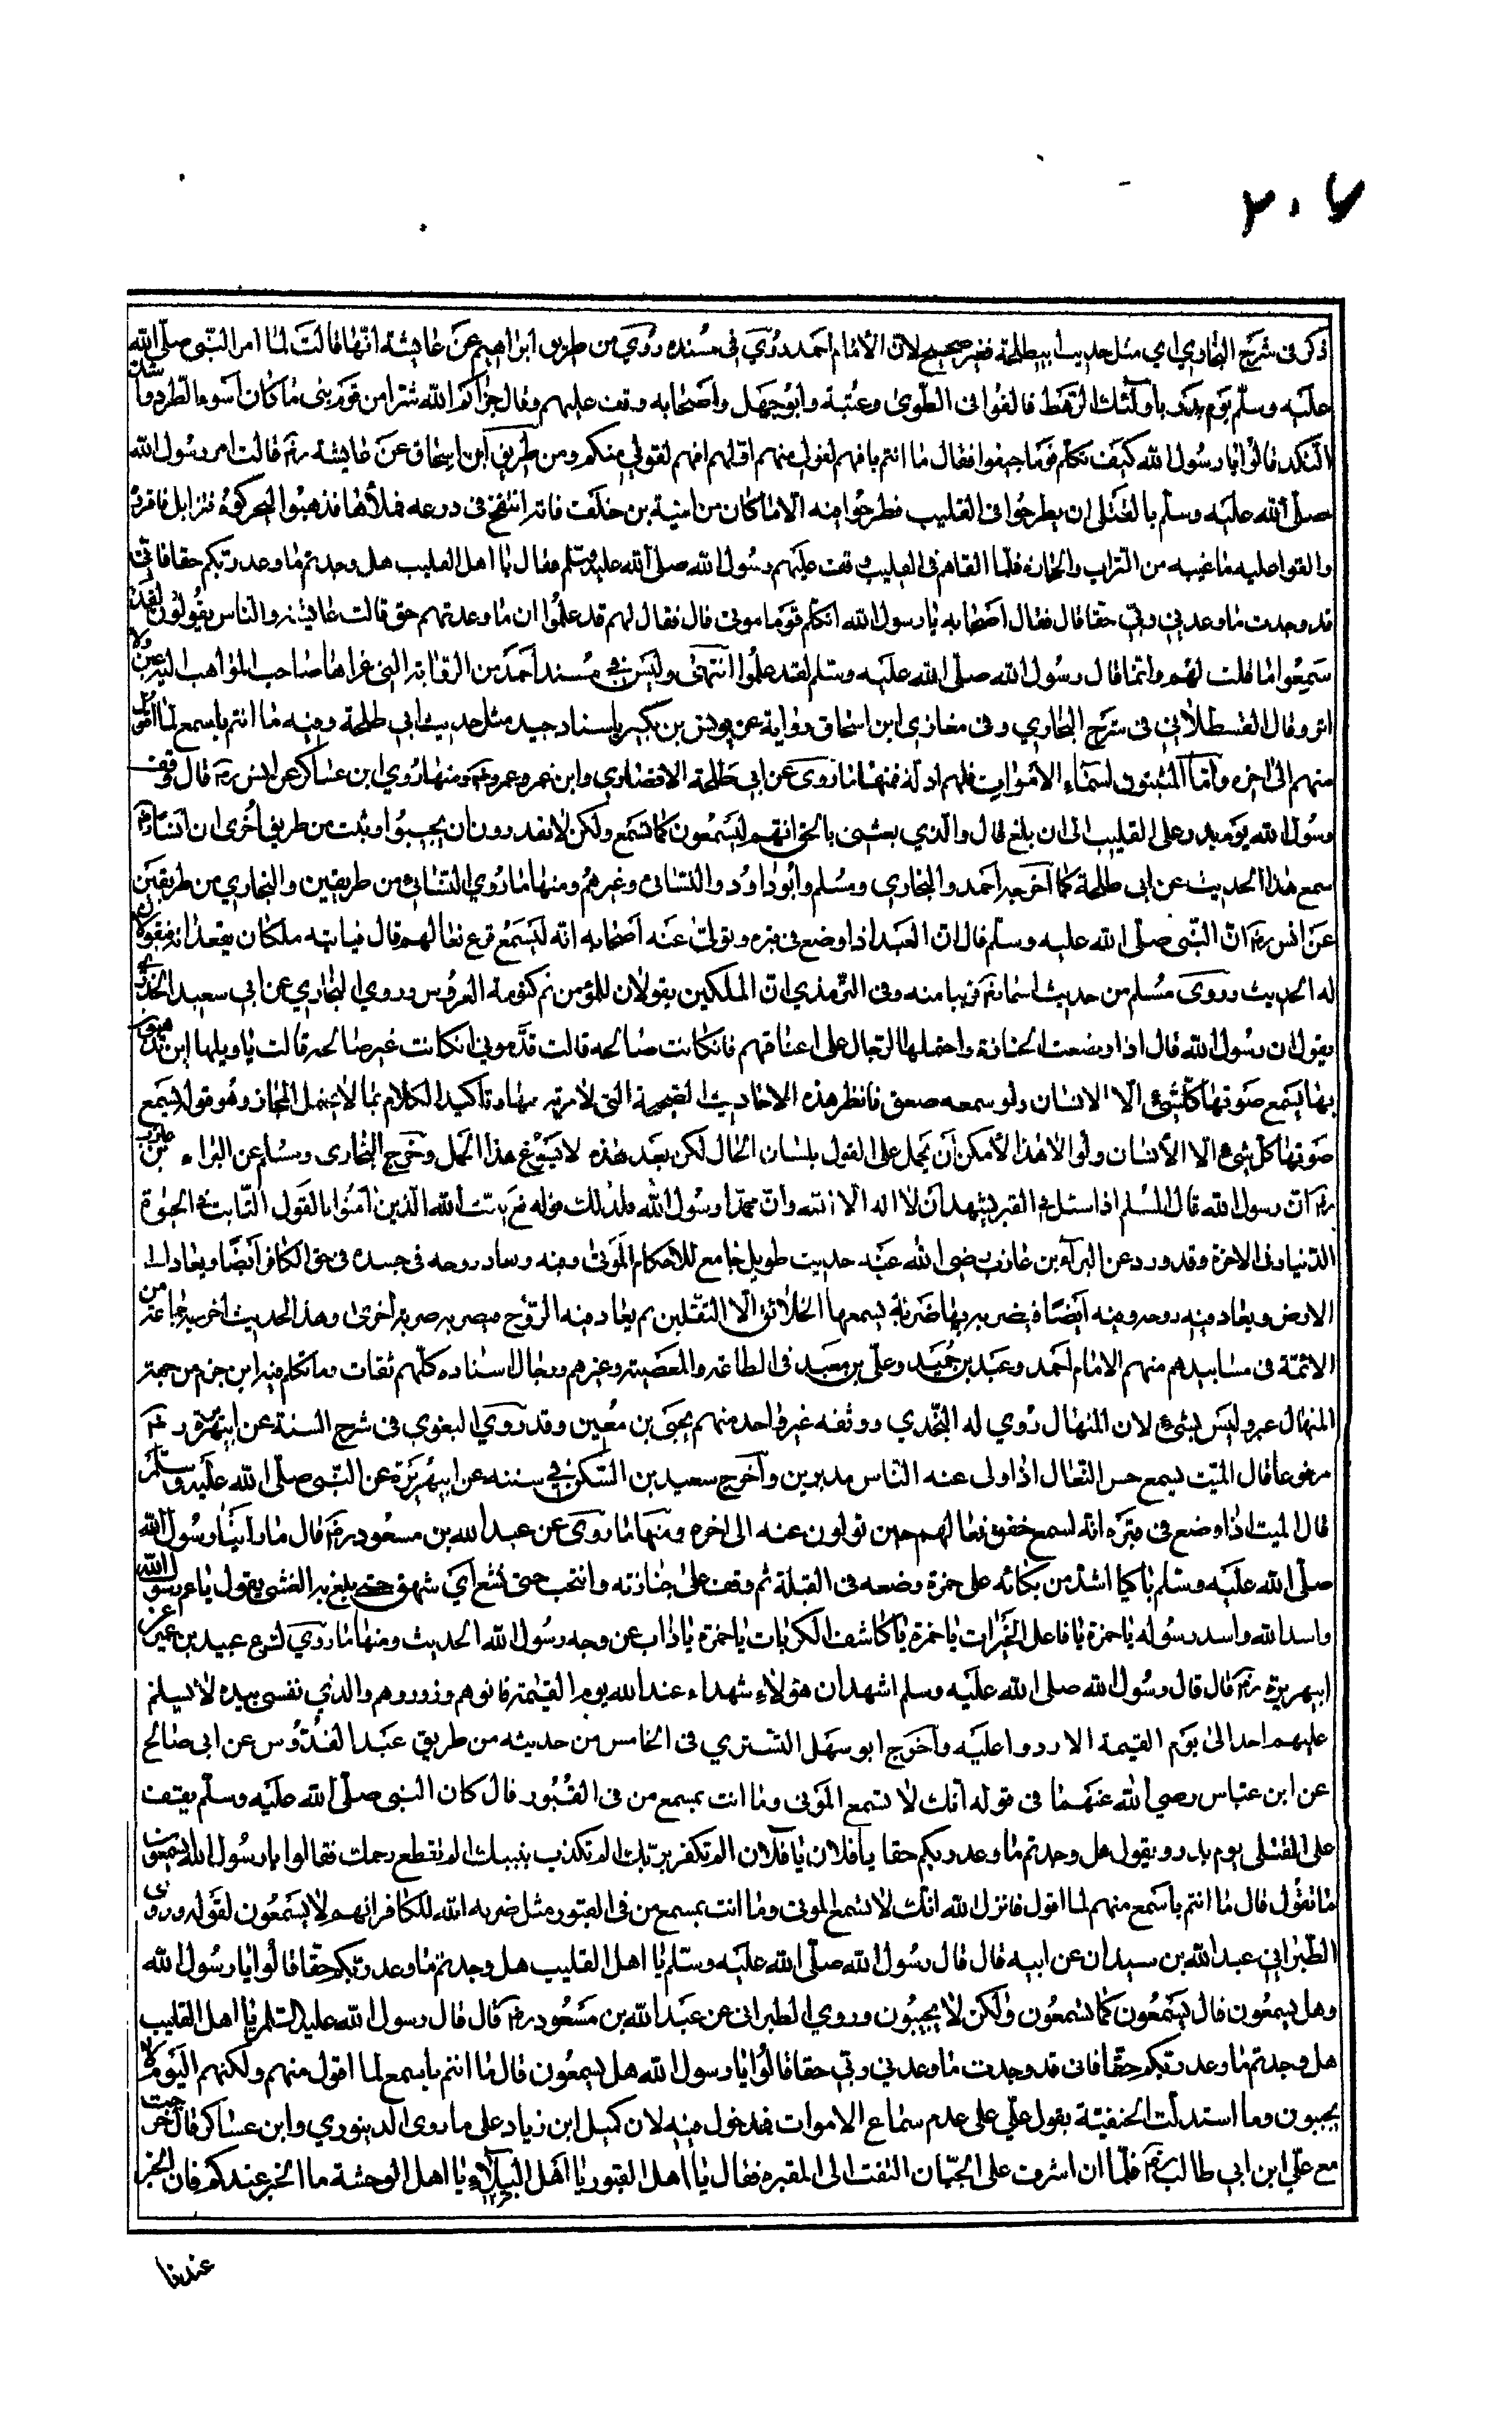 ٢٠٧
ذكر فى شرح البخاري اي مثل حديث ابيطلحة فغير صحيح لان الامام احمد روى فى مسنده روي من طريق ابراهيم عن عايشة انها قالت لما امر النبى صلى الله
عليه وسلم يوم بدر باولئك الرهط فالقوا فى الطوى وعتبة وابو جهل واصحابه وقف عليهم وقال جزاكم الله شرا من قوم نبى ما كان اسوء الطرد وما شد
التكذ قالوا يا رسول الله كيف تكلم قوما جيفوا فقال ما انتم بافهم لقولى منهم او لهم افهم لقولي منكم ومن طريق ابن اسحاق عن عايشة رض قالت امر رسول الله
صلى الله عليه وسلم بالقتلى ان يطرحوا فى القليب فطرحوا فيه الا ما كان من امية بن خلف فانه انتفخ فى درعه فملأها فذهبوا ليحركوه فتزايل فاقروه
والقوا عليه ما غيبه من التراب والحجارة فلما القاهم فى القليب وقف عليهم رسول الله صلى الله عليه وسلم فقال يا اهل القليب هل وجدتم ما وعد ربكم حقا فانى
قد وجدت ما وعدني ربي حقا قال فقال اصحابه يا رسول الله اتكلم قوما موتى قال فقال لهم قد علموا ان ما وعدتهم حق قالت عايشة والناس يقولون لقد
سمعوا ما قلت لهم وانما قال رسول الله صلى الله عليه وسلم لقد علموا انتهى وليس في مسند احمد من الرواية التى عزاها صاحب المواهب اليه عين ولا
اثر وقال القسطلاني فى شرح البخاري وفى مغازى ابن اسحاق رواية عن يونس بن بكير باسناد جيد مثل حديث ابي طلحة وفيه ما انتم باسمع لما اقول
منهم الى اخره واما المثبتون لسماع الاموات فلهم ادلة فمنها ما روى عن ابي طلحة الانصاري وابن عمر وعمر ومنها روي ابن عساكر عن انس رض قال وقف
رسول الله يوم بدر على القليب الى ان بلغ قال والذي بعثنى بالحق انهم ليسمعون كما تسمع ولكن لا يقدرون ان يجيبوا وثبت من طريق اخرى ان انسا رض
سمع هذا الحديث عن ابى طلحة كما اخرجه احمد والبخاري ومسلم وابو داود والنسائى وغيرهم ومنها ما روي النسائى من طريقين والبخاري من طريقين
عن انس رض ان النبى صلى الله عليه وسلم قال ان العبد اذا وضع فى قبره وتولى عنه اصحابه انه ليسمع قرع نعالهم قال فياتيه ملكان يقعدانه فيقولان
له الحديث وروى مسلم من حديث اسما رض قريبا منه وفى الترمذي ان الملكين يقولان للمؤمن نم كنومة العروس وروي البخاري عن ابي سعيد الخدري
يقول ان رسول الله قال اذا وضعت الجنازة واحتملها الرجال على اعناقهم فان كانت صالحه قالت قدموني وان كانت غير صالحه قالت يا ويلها اين تذهبون
بها يسمع صوتها كل شئ الا الانسان ولو سمعه صعق فانظر هذه الاحاديث الصحيحة التى لا مرية بها وتاكيد الكلام بما لا يحتمل المجاز وهو قوله يسمع
صوتها كل شئ الا الانسان ولولا هذا لامكن ان يحمل على القول بلسان الحال لكن بعد هذه لا يسوغ هذا الحمل وخرج البخارى ومسلم عن البراء بن عازب
رض ان رسول الله قال المسلم اذا سئل في القبر يشهد ان لا اله الا الله وان محمدا رسول الله فلذلك قوله يثبت الله الذين امنوا بالقول الثابت في الحيوة
الدنيا وفى الاخرة وقد ورد عن البراء بن عازب رضى الله عنه حديث طويل جامع لاحكام الموتى وفيه وتعاد روحه فى جسده فى حق الكافر ايضا ويعاد الى
الارض ويعاد فيه روحه وفيه ايضا فيضربه بها ضربة يسمعها الخلائق الا الثقلين ثم يعاد فيه الروح فيضربه ضربة اخرى وهذا الحديث اخرجه جماعة من
الائمة فى مسانيدهم منهم الامام احمد وعبد بن حميد وعلى بن معبد فى الطاعة والمعصية وغيرهم ورجال اسناده كلهم ثقات وما تكلم فيه ابن حزم من جهة
المنهال عمرو ليس بشئ لان المنهال روي له البخاري ووثقه غير واحد منهم يحيى بن معين وقد روي البغوي فى شرح السنة عن ابيهريرة رض
مرفوعا قال الميت يسمع حس النعال اذا ولى عنه الناس مدبرين واخرج سعيد بن السكن في سننه عن ابيهريرة عن النبى صلى الله عليه وسلم
قال الميت اذا وضع فى قبره انه ليسمع خفق نعالهم حين تولون عنه الى اخره ومنها ما روى عن عبد الله بن مسعود رض قال ما راينا رسول الله
صلى الله عليه وسلم باكيا اشد من بكائه على حمزة وضعه فى القبلة ثم وقف على جنازته وانتحب حتى نشع اي شهق حتى بلغ به الغشى يقول يا عم رسول الله
واسد الله واسد رسوله يا حمزة يا فاعل الخيرات يا حمزة يا كاشف الكربات يا حمزة يا ذاب عن وجه رسول الله الحديث ومنها ما روى عبيد بن عمير عن
ابيهريرة رض قال قال رسول الله صلى الله عليه وسلم اشهد ان هولاء شهداء عند الله يوم القيمة فاتوهم وزوروهم والذي نفسى بيده لا يسلم
عليهم احد الى يوم القيمة الا ردوا عليه واخرج ابو سهل التسترى فى الخامس من حديثه من طريق عبد القدوس عن ابى صالح
عن ابن عباس رضي الله عنهما فى قوله انك لا تسمع الموتى وما انت بمسمع من فى القبور قال كان النبى صلى الله عليه وسلم يقف
على القتلى يوم بدر ويقول هل وجدتم ما وعد ربكم حقا يا فلان يا فلان الم تكفر بربك الم تكذب بنبيك الم تقطع رحمك فقالوا يا رسول الله يسمعون
ما تقول قال ما انتم باسمع منهم لما اقول فانزل الله انك لا تسمع الموتى وما انت بمسمع من فى القبور مثل ضربه الله للكافر انهم لا يسمعون لقوله وروى
الطبرانى عبد الله بن سيدان عن ابيه قال قال رسول الله صلى الله عليه وسلم يا اهل القليب هل وجدتم ما وعد ربكم حقا قالوا يا رسول الله
وهل يسمعون قال يسمعون كما تسمعون ولكن لا يجيبون وروي الطبرانى عن عبد الله بن مسعود رض قال قال رسول الله عليه السلام يا اهل القليب
هل وجدتم ما وعد ربكم حقا فانى قد وجدت ما وعدني ربي حقا قالوا يا رسول الله هل يسمعون قال ما انتم باسمع لما اقول منهم ولكنهم اليوم لا
يجيبون وما استدلت الحنفية بقول علي على عدم سماع الاموات فمدخول فيه لان كميل ابن زياد على ما روى الدينوري وابن عساكر قال خرجت
مع علي ابن ابي طالب رض فلما ان اشرف على الجبان التفت الى المقبره فقال يا اهل القبور يا اهل البلاء يا اهل الوحشة ما الخبر عندكم فان الخبر
عندنا